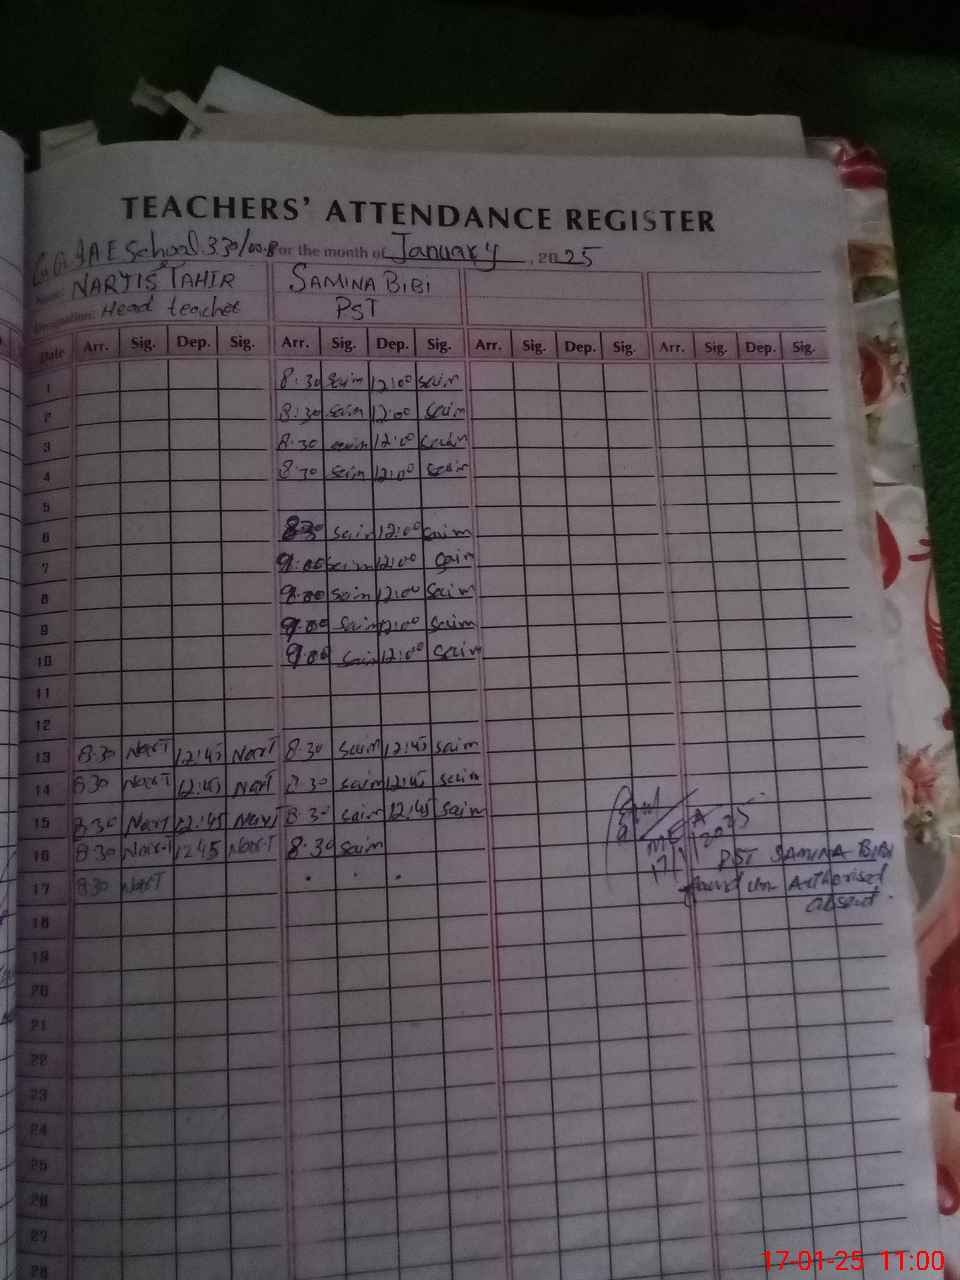 TEACHERS' ATTENDANCE REGISTER
School 330/ for the month of January, 2025
Name: NARJIS TAHIR SAMINA BIBI
Designation: Head teacher PST
Date Arr. Sig. Dep. Sig. Arr. Sig. Dep. Sig. Arr. Sig. Dep. Sig. Arr. Sig. Dep. Sig.
1 8:30 Saim 12:00 Saim
2 8:30 Saim 12:00 Saim
3 8:30 Saim 12:00 Saim
4 8:30 Saim 12:00 Saim
5
6 8:30 Saim 12:00 Saim
7 9:00 Saim 12:00 Saim
8 9:00 Saim 12:00 Saim
9 9:00 Saim 12:00 Saim
10 9:00 Saim 12:00 Saim
11
12
13 8:30 NarT 12:45 NarT 8:30 Saim 12:45 Saim
14 8:30 NarT 12:45 NarT 8:30 Saim 12:45 Saim
15 8:30 NarT 12:45 NarT 8:30 Saim 12:45 Saim
16 8:30 Nar.T 12:45 Nar.T 8:30 Saim
17 8:30 NarT
MEA
17/1/2025
PST SAMINA BIBI
found un Authorised
absent.
18
19
20
21
22
23
24
25
26
27
28
17-01-25 11:00